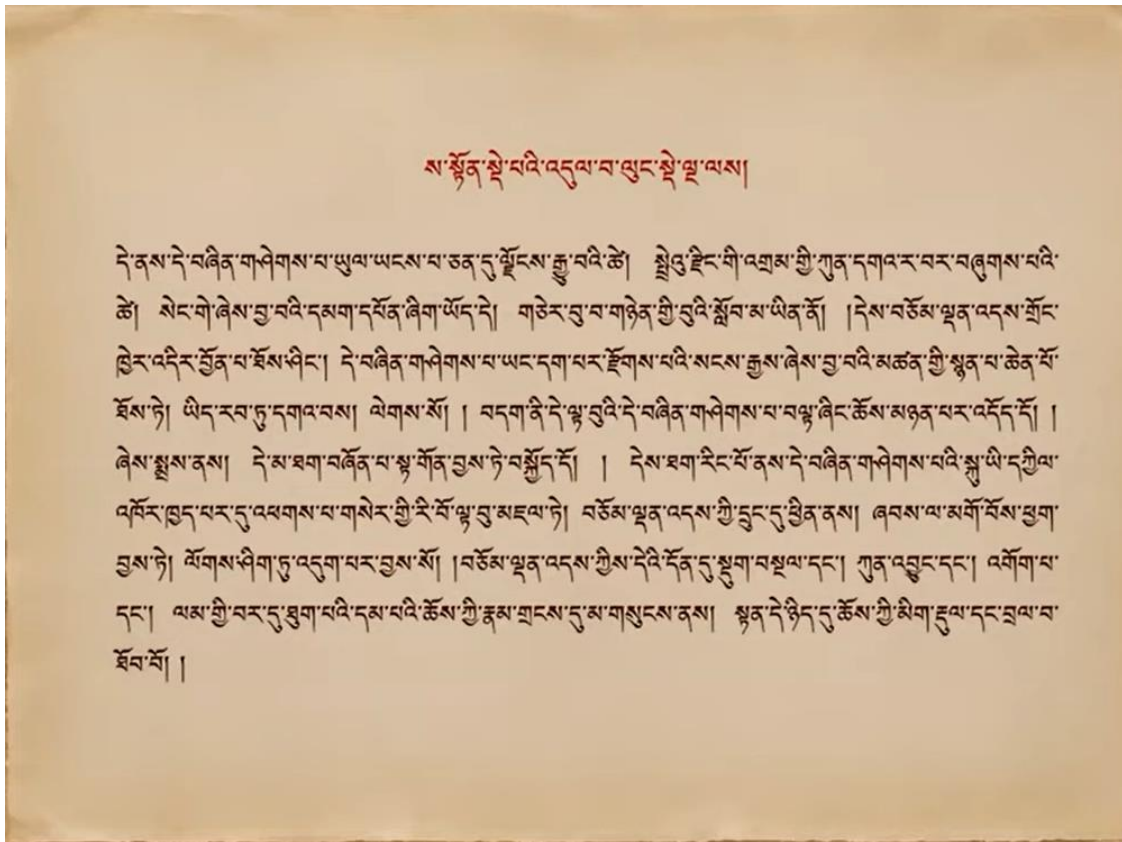 ས་སྟོན་སྡེ་པའི་འདུལ་བ་ལུང་སྡེ་ལྔ་ལས།
དེ་ནས་དེ་བཞིན་གཤེགས་པ་ཡུལ་ཡངས་པ་ཅན་དུ་ལྗོངས་རྒྱུ་བའི་ཚེ། སྤྲེའུ་རྫིང་གི་འགྲམ་གྱི་ཀུན་དགའ་ར་བར་བཞུགས་པའི་
ཚེ། སེང་གེ་ཞེས་བྱ་བའི་དམག་དཔོན་ཞིག་ཡོད་དེ། གཅེར་བུ་བ་གཉེན་གྱི་བུའི་སློབ་མ་ཡིན་ནོ། །དེས་བཅོམ་ལྡན་འདས་གྲོང་
ཁྱེར་འདིར་བྱོན་པ་ཐོས་ཤིང་། དེ་བཞིན་གཤེགས་པ་ཡང་དག་པར་རྫོགས་པའི་སངས་རྒྱས་ཞེས་བྱ་བའི་མཚན་གྱི་སྙན་པ་ཆེན་པོ་
ཐོས་ཏེ། ཡིད་རབ་ཏུ་དགའ་བས། ལེགས་སོ། ། བདག་ནི་དེ་ལྟ་བུའི་དེ་བཞིན་གཤེགས་པ་བལྟ་ཞིང་ཆོས་མཉན་པར་འདོད་དོ། །
ཞེས་སྨྲས་ནས། དེ་མ་ཐག་བཞོན་པ་སྟ་གོན་བྱས་ཏེ་བསྐྱོད་དོ། ། དེས་ཐག་རིང་པོ་ནས་དེ་བཞིན་གཤེགས་པའི་སྐུ་ཡི་དཀྱིལ་
འཁོར་ཁྱད་པར་དུ་འཕགས་པ་གསེར་གྱི་རི་བོ་ལྟ་བུ་མཇལ་ཏེ། བཅོམ་ལྡན་འདས་ཀྱི་དྲུང་དུ་ཕྱིན་ནས། ཞབས་ལ་མགོ་བོས་ཕྱག་
བྱས་ཏེ། ལོགས་ཤིག་ཏུ་འདུག་པར་བྱས་སོ། །བཅོམ་ལྡན་འདས་ཀྱིས་དེའི་དོན་དུ་སྡུག་བསྔལ་དང་། ཀུན་འབྱུང་དང་། འགོག་པ་
དང་། ལམ་གྱི་བར་དུ་ཐུག་པའི་དམ་པའི་ཆོས་ཀྱི་རྣམ་གྲངས་དུ་མ་གསུངས་ནས། སྟན་དེ་ཉིད་དུ་ཆོས་ཀྱི་མིག་རྡུལ་དང་བྲལ་བ་
ཐོབ་བོ། །